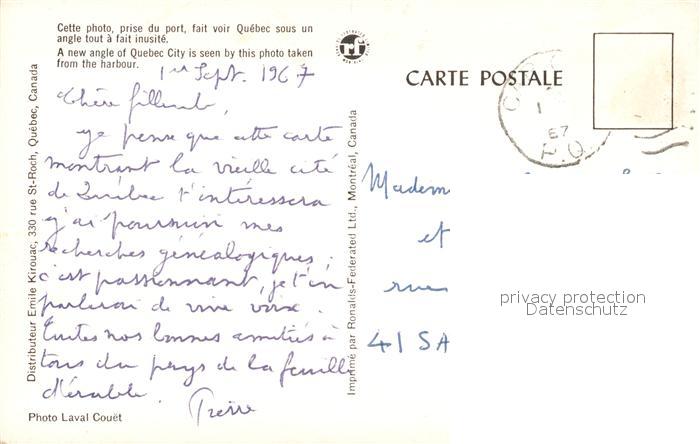 Cette photo, prise du port, fait voir Québec sous un
angle tout à fait inusité.
A new angle of Quebec City is seen by this photo taken
from the harbour.
1er Sept. 1967
Chère
je pense que cette carte
montrant la vieille cité
de Québec t'intéressera
j'ai poursuivi mes
recherches généalogiques ;
c'est passionnant, je t'en
parlerai de vive voix.
Toutes nos bonnes amitiés à
tous du pays de la feuille
d'érable. Pierre
Photo Laval Couët
Distributeur Emile Kirouac, 330 rue St-Roch, Québec, Canada
Imprimé par Ronalds-Federated Ltd., Montréal, Canada
CARTE POSTALE
67
P.Q.
Madem
et
rue
41 SA
privacy protection
Datenschutz